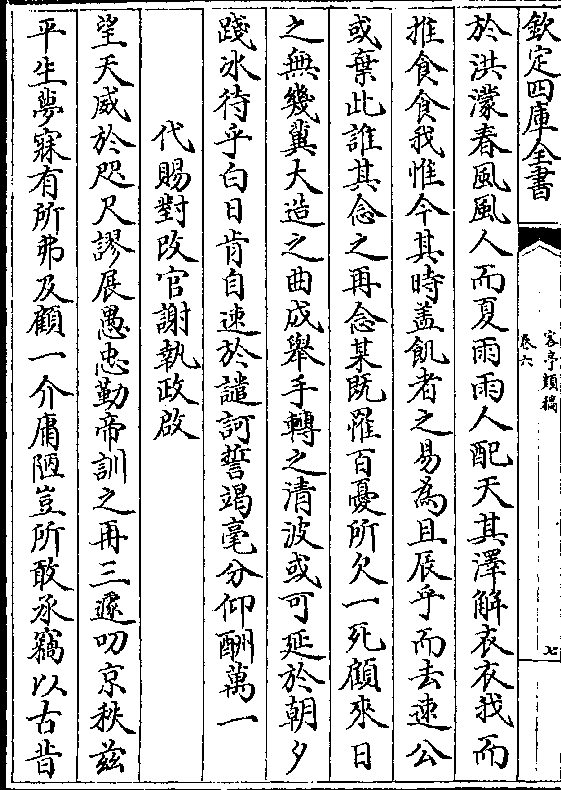 欽定四庫全書
客亭類稿
卷六
七
於洪濛春風風人而夏雨雨人配天其澤解衣衣我而
推食食我惟今其時盖飢者之易為且辰乎而去速公
或棄此誰其念之再念某既罹百憂所欠一死顧來日
之無幾冀大造之曲成舉手轉之清波或可延於朝夕
踐冰待乎白日肯自速於譴訶誓竭毫分仰酬萬一
代賜對改官謝執政啟
望天威於咫尺謬展愚忠勤帝訓之再三遽叨京秩兹
平生夢寐有所弗及顧一介庸陋豈所敢承竊以古昔